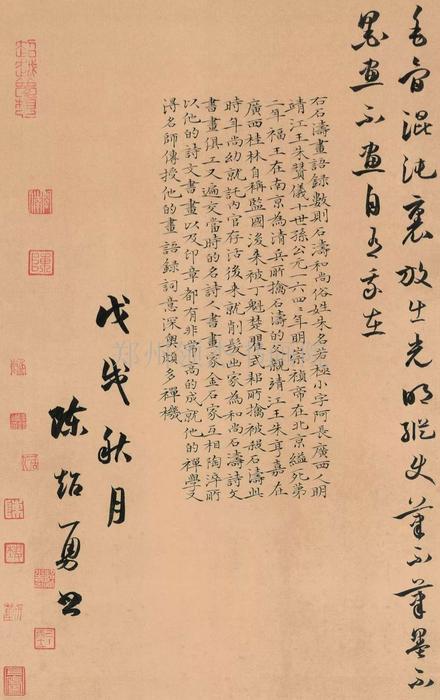 毛骨混沌裏放出光明縱使筆不筆墨不
墨畫不畫自有我在
右石濤畫語錄數則石濤和尚俗姓朱名若極小字阿長廣西人明
靖江王朱贊儀十世孫公元一六四二年明崇禎帝在北京縊死第
二年福王在南京為清兵所擒石濤的父親靖江王朱亨嘉在
廣西桂林自稱監國後来被丁魁楚瞿式耜所擒被殺石濤此
時年尚幼就託內官存活後来就削髮出家為和尚石濤詩文
書畫俱工又遍交當時的名詩人書畫家金石家互相陶淬所
以他的詩文書畫以及印章都有非常高的成就他的禪學又
得名師傳授他的畫語錄詞意深奥頗多禪機
戊戌秋月
陈紹勇書